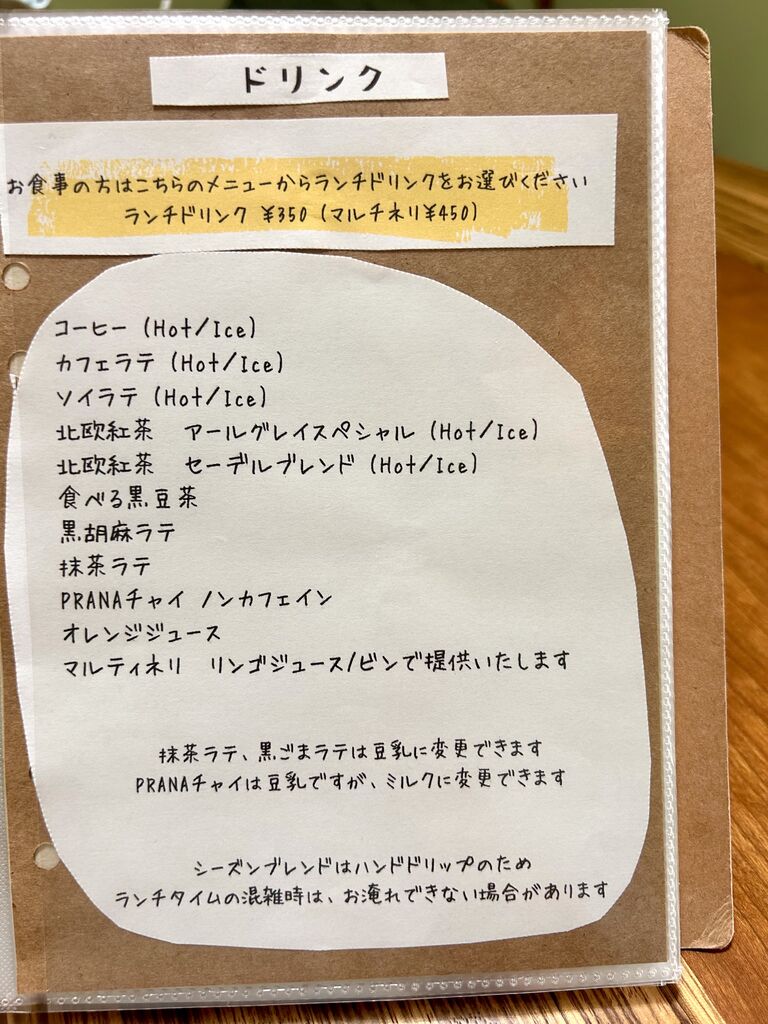 ドリンク
お食事の方はこちらのメニューからランチドリンクをお選びください
ランチドリンク ¥350 (マルチネリ¥450)
コーヒー (Hot/Ice)
カフェラテ (Hot/Ice)
ソイラテ (Hot/Ice)
北欧紅茶　アールグレイスペシャル (Hot/Ice)
北欧紅茶　セーデルブレンド (Hot/Ice)
食べる黒豆茶
黒胡麻ラテ
抹茶ラテ
PRANAチャイ ノンカフェイン
オレンジジュース
マルティネリ　リンゴジュース/ビンで提供いたします
抹茶ラテ、黒ごまラテは豆乳に変更できます
PRANAチャイは豆乳ですが、ミルクに変更できます
シーズンブレンドはハンドドリップのため
ランチタイムの混雑時は、お淹れできない場合があります